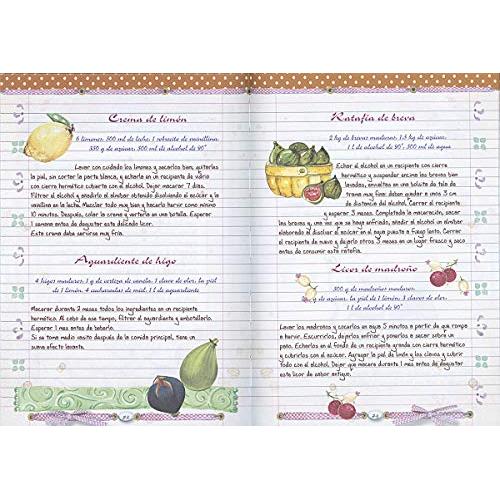 Crema de limón
6 limones, 500 ml de leche, 1 sobrecito de vainillina,
550 g de azúcar, 500 ml de alcohol de 90°
Lavar con cuidado los limones y secarlos bien, quitarles
la piel, sin cortar la parte blanca, y echarla en un recipiente de vidrio
con cierre hermético cubierta con el alcohol. Dejar macerar 7 días.
Filtrar el alcohol y añadirlo al almíbar obtenido disolviendo el azúcar y la
vainillina en la leche. Mezclar todo muy bien y hacerlo hervir como mínimo
10 minutos. Después, colar la crema y verterla en una botella. Esperar
1 semana antes de degustar este delicado licor.
Esta crema debe servirse muy fría.
Aguardiente de higo
4 higos maduros, 1 g de corteza de canela, 1 clavo de olor, la piel
de 1 limón, 4 cucharadas de miel, 1 l de aguardiente
Macerar durante 2 meses todos los ingredientes en un recipiente
hermético. Al cabo de ese tiempo, filtrar el aguardiente y embotellarlo.
Esperar 1 mes antes de beberlo.
Si se toma medio vasito después de la comida principal, tiene un
sumo efecto laxante.
Ratafía de breva
2 kg de brevas maduras, 1,5 kg de azúcar,
1 l de alcohol de 90°, 500 ml de agua
Echar el alcohol en un recipiente con cierre
hermético y suspender encima las brevas bien
lavadas, envueltas en una bolsita de tela de
trama muy fina, que debe quedar a unos 3 cm
de distancia del alcohol. Cerrar el recipiente
y esperar 3 meses. Completada la maceración, sacar
las brevas y, una vez que se haya enfriado, añadir el alcohol al
almíbar obtenido disolviendo el azúcar en el agua puesta a fuego lento. Cerrar
el recipiente de nuevo y dejarlo otros 3 meses en un lugar fresco y seco
antes de consumir esta ratafía.
Licor de madroño
300 g de madroños maduros,
de azúcar, la piel de 1 limón, 3 clavos de olor,
1 l de alcohol de 90°
Lavar los madroños y sacarlos en agua 3 minutos a partir de que rompe
a hervir. Escurrirlos, dejarlos enfriar y ponerlos a secar sobre un
paño. Echarlos en el fondo de un recipiente grande con cierre hermético
y cubrirlos con el azúcar. Agregar la piel de limón y los clavos y cubrir
todo con el alcohol. Dejar que macere durante 1 mes antes de degustar
este licor de sabor antiguo.